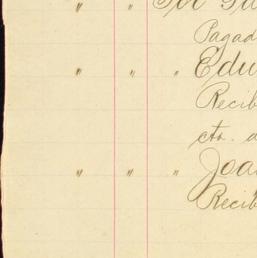 " "
Pagad
" " " Edu
Recib
cto. a
" " " Joa
Recib